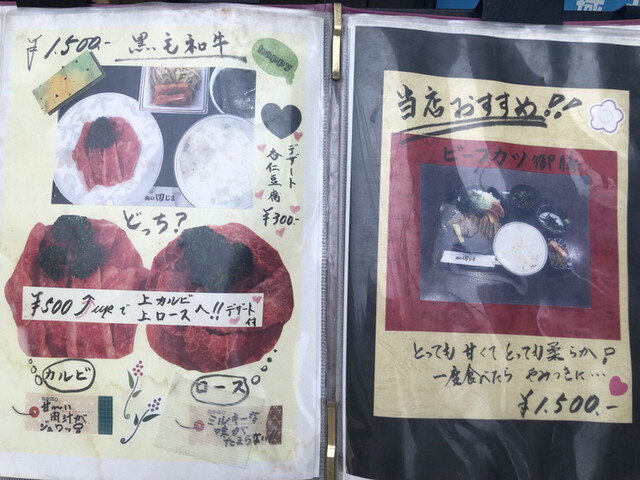 ¥1,500.- 黒毛和牛
happy
デザート
杏仁豆腐
¥300-
どっち?
¥500 up で 上カルビ
上ロースへ!! デザート付
カルビ
ロース
甘〜い
肉汁が
ジュワッ
ミルキーな
味が
たまらない!
当店おすすめ!!
ビーフカツ御膳
とっても甘くてとっても柔らか!
一度食べたら やみつきに…
¥1,500.-